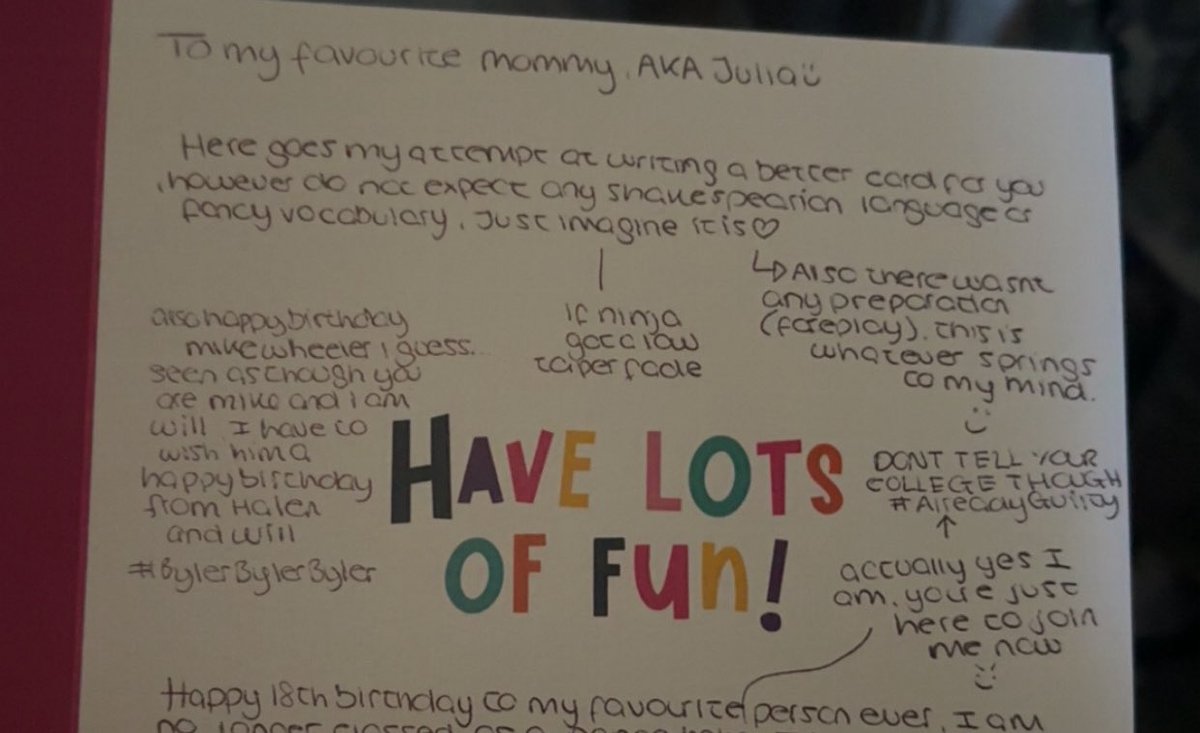 To my favourite mommy, AKA Julia :)
Here goes my attempt at writing a better card for you
, however do not expect any shakespearian language or
fancy vocabulary. Just imagine it is ♡
if ninja
got a low
taper fade
↳ Also there wasnt
any preparation
(foreplay). this is
whatever springs
to my mind.
:)
also happy birthday
mike wheeler i guess...
seen as though you
are mike and i am
will I have to
wish him a
happy birthday
from Halen
and will
#BylerBylerByler
HAVE LOTS
OF FUN!
DONT TELL YOUR
COLLEGE THOUGH
#AlreadyGuilty
↑
actually yes I
am. you're just
here to join
me now
:)
Happy 18th birthday to my favourite person ever. I am
no longer classed as a